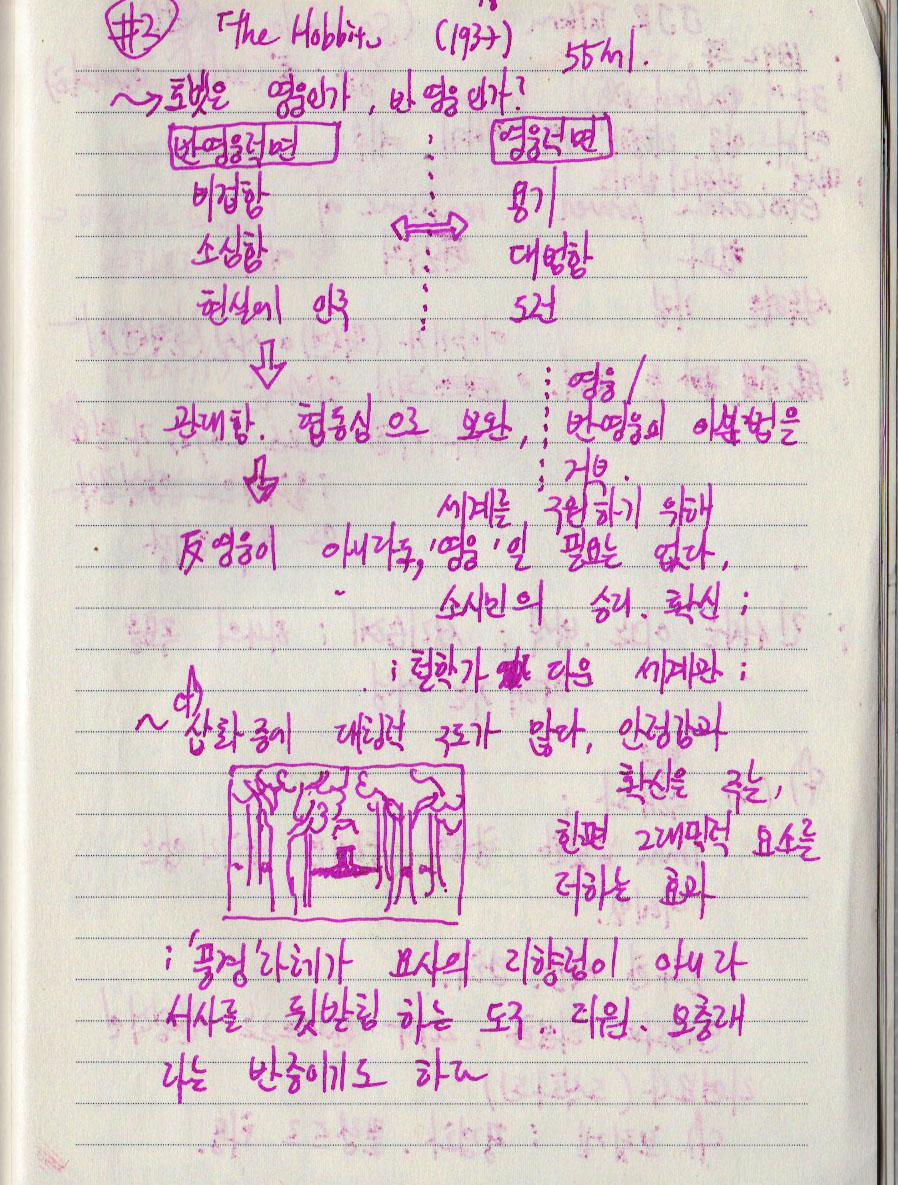 #3 The Hobbit (1937)
호빗은 영웅인가, 반 영웅인가?
반영웅적면 영웅적면
비겁함 용기
소심함 대범함
현실에 안주 도전
관대함. 협동심으로 보완,
영웅/
반영웅의 이분법을
거부.
세계를 구원하기 위해
反영웅이 아니라도, '영웅'일 필요는 없다,
소시민의 승리. 확신;
; 철학가 다운 세계관;
삽화 중에 대칭적 구도가 많다, 안정감과
확신을 주는,
한편 그래픽적 요소를
더하는 효과
; '풍경'자체가 묘사의 이 아니라
서사를 뒷받침 하는 도구.
라는 반증이기도 하다